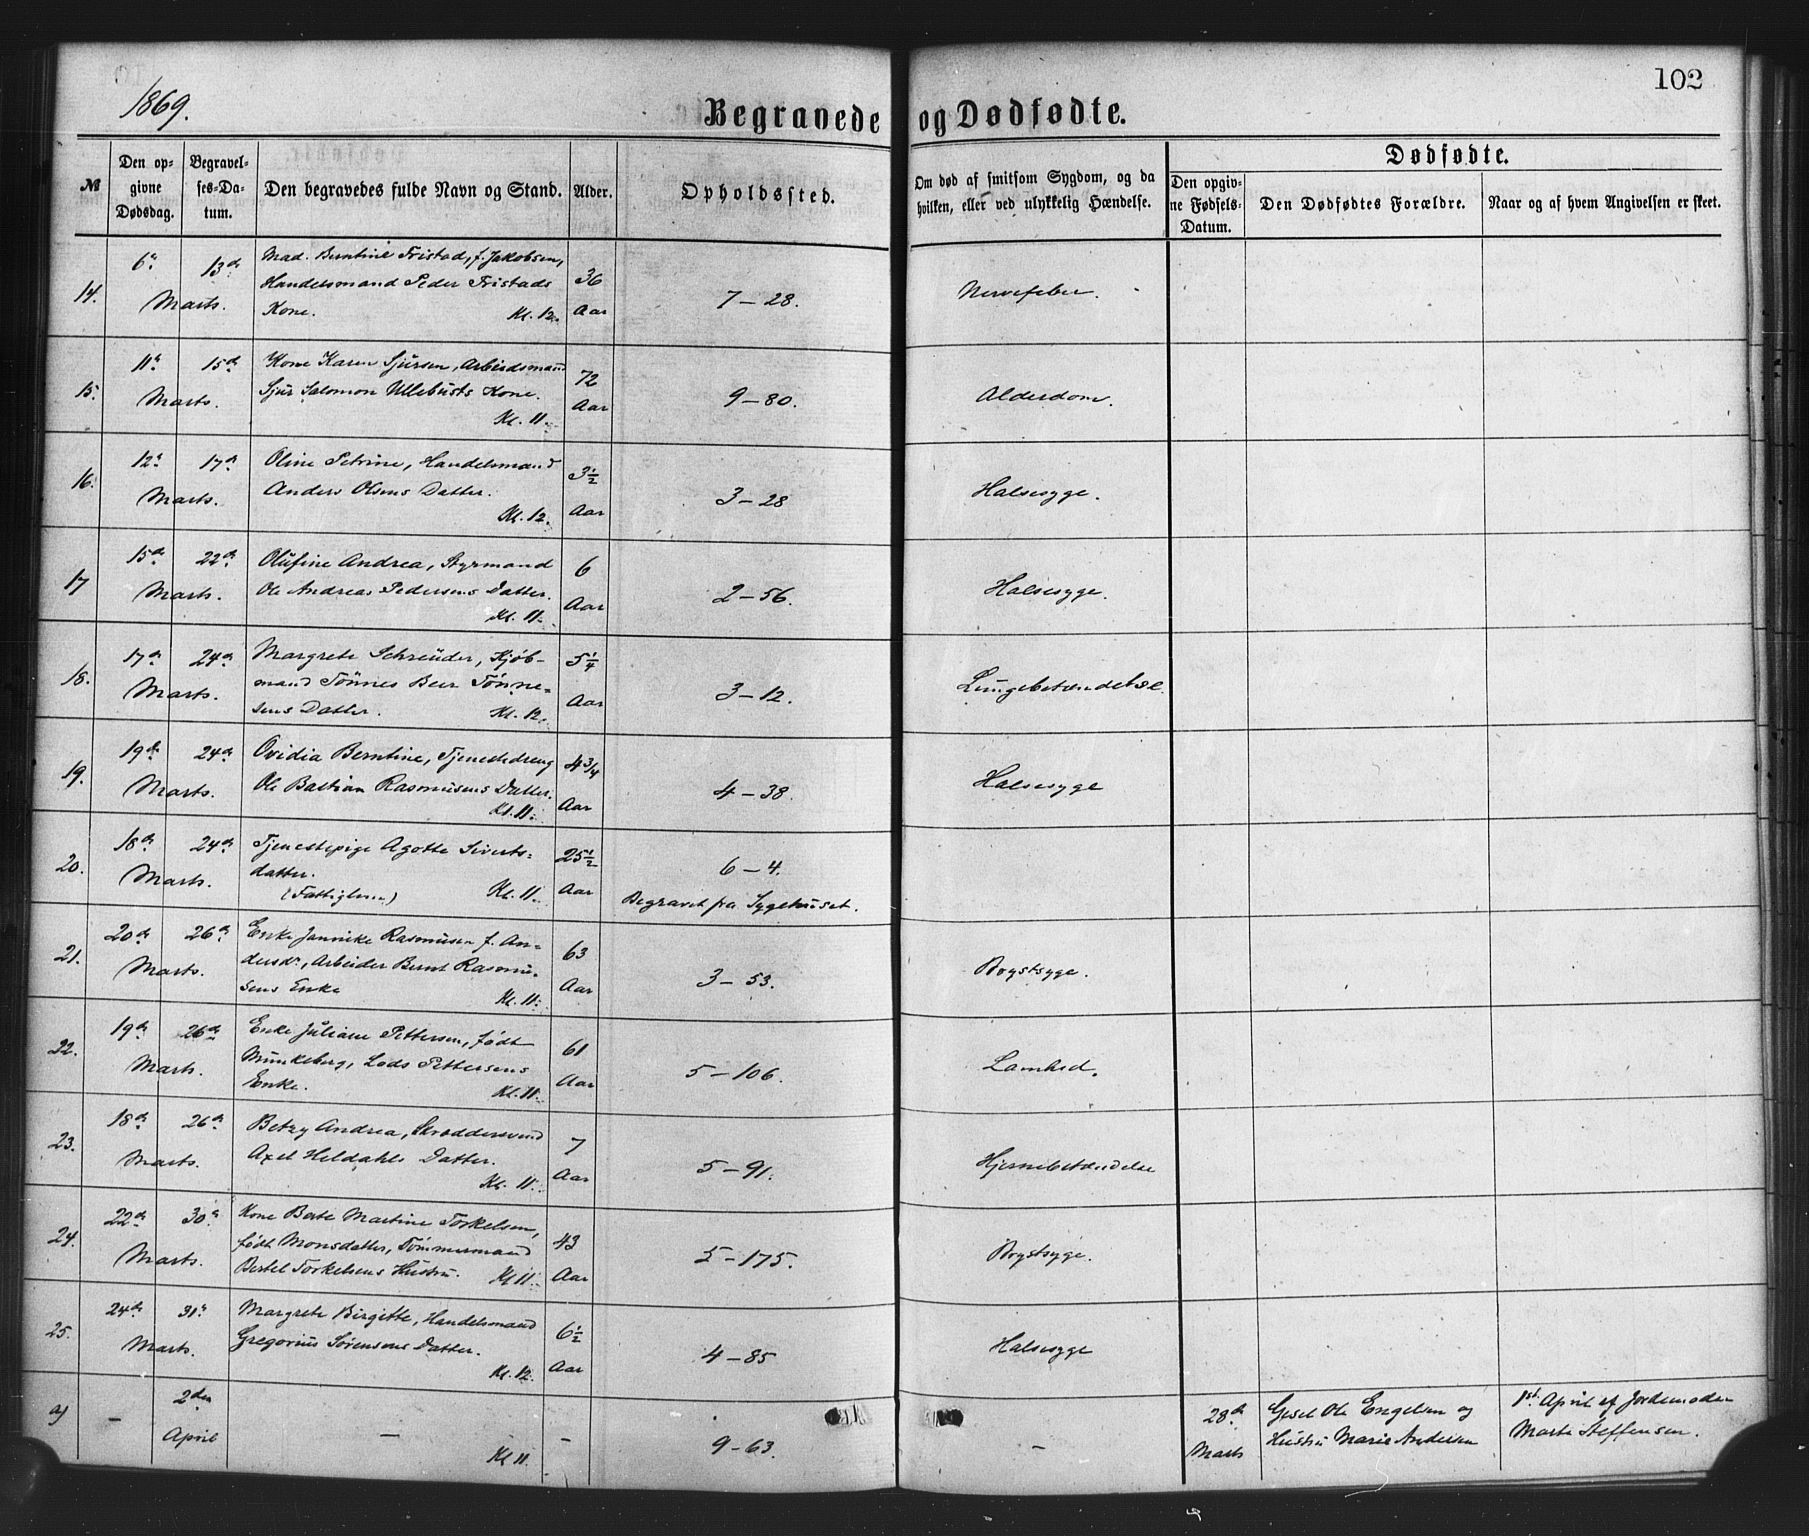 1869.
102
Begravede og Dødfødte.
№
Den opgivne Dødsdag.
Begravelses-Datum.
Den begravedes fulde Navn og Stand.
Alder.
Opholdssted.
Om død af smitsom Sygdom, og da hvilken, eller ved ulykkelig Hændelse.
Dødfødte.
Den opgivne Fødsels-Datum.
Den Dødfødtes Forældre.
Naar og af hvem Angivelsen er skeet.
14. 6te 13de Marts.
Mad. Berntine Tristad, f. Jakobsen,
Handelsmand Peder Tristads
Kone. Kl. 12.
36 Aar
7 – 28.
Nervefeber.
15. 11te 15de Marts.
Kone Karen Sjursen, Arbeidsmand
Sjur Salomon Ullebusts Kone.
Kl. 11.
72 Aar
9 – 80.
Alderdom.
16. 12te 17de Marts.
Oline Petrine, Handelsmand
Anders Olsens Datter.
Kl. 12.
3½ Aar
3 – 28
Halsesyge.
17 15de 22de Marts.
Olufine Andrea, Styrmand
Ole Andreas Pedersens Datter.
Kl. 11.
6 Aar
2 – 56.
Halsesyge.
18. 17de 24de Marts.
Margrete Schreuder, Kjøb-
mand Tönnes Beer Tönne-
sens Datter. Kl. 12.
5¼ Aar
3 – 12.
Lungebetændelse.
19. 19de 24de Marts.
Ovidia Berntine, Tjenestedreng
Ole Bastian Rasmusens Datter.
Kl. 11.
4¾ Aar
4 – 38.
Halsesyge
20. 18de 24de Marts.
Tjenestepige Agotte Siverts-
datter.
(Fattiglem) Kl. 11.
25½ Aar
6 – 4.
Begravet fra Sygehuset.
21. 20de 26de Marts.
Enke Jannike Rasmusen f. An-
dersdr., Arbeider Bernt Rasmu-
sens Enke Kl. 11.
63 Aar
3 – 53.
Brystsyge.
22. 19de 26de Marts.
Enke Juliane Pettersen, født
Munkeberg, Lods Pettersens
Enke. Kl. 11.
61 Aar
5 – 106.
Lamhed.
23. 18de 26de Marts.
Betzy Andrea, Skræddersvend
Axel Heldahls Datter.
Kl. 11.
7 Aar
5 – 91.
Hjernebetændelse
24. 22de 30te Marts.
Kone Berte Martine Torkelsen,
født Monsdatter, Tömmermand
Bertel Torkelsens Hustru. Kl 11.
43 Aar
5 – 175.
Brystsyge.
25. 24de 31te Marts.
Margrete Birgitte, Handelsmand
Gregorius Sörensens Datter.
Kl. 12.
6½ Aar
4 – 85
Halsesyge
a) – 2den April
–
Kl 11.
–
9 – 63.
–
28de Marts
Gesel Ole Engelsen og
Hustru Marie Andersen
1st. April af Jordemoder
Marte Steffensen.